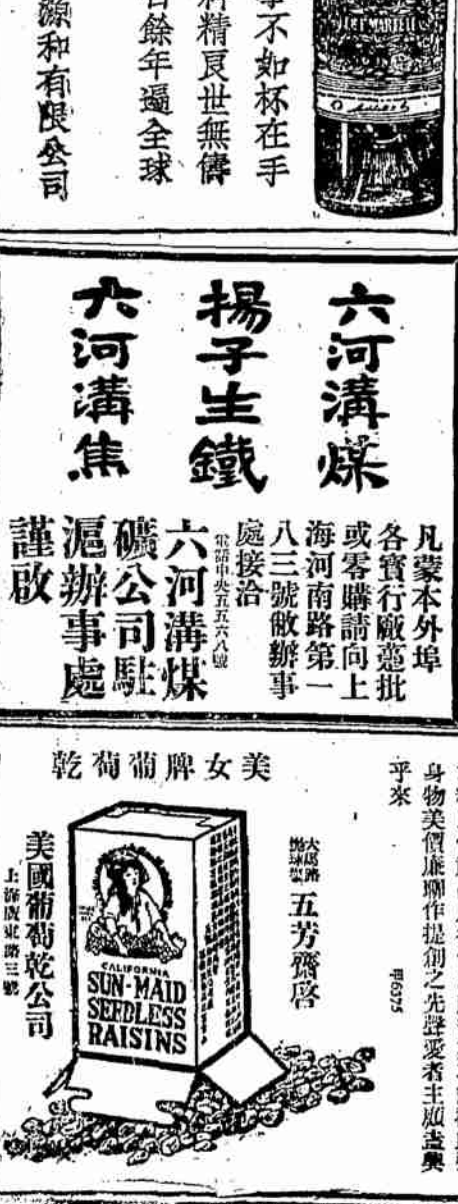 不如杯在手
料精良世無儔
百餘年遍全球
源和有限公司
六河溝煤
揚子生鐵
六河溝焦
凡蒙本外埠
各寶行廠躉批
或零購請向上
海河南路第一
八三號敝辦事
處接洽
電話中央五五六八號
六河溝煤
礦公司駐
滬辦事處
謹啟
身物美價廉聊作提創之先聲愛者主顧盍興
乎來
大馬路
拋球場
五芳齋啓
美女牌葡萄乾
CALIFORNIA
SUN-MAID
SEEDLESS
RAISINS
美國葡萄乾公司
上海廣東路三號